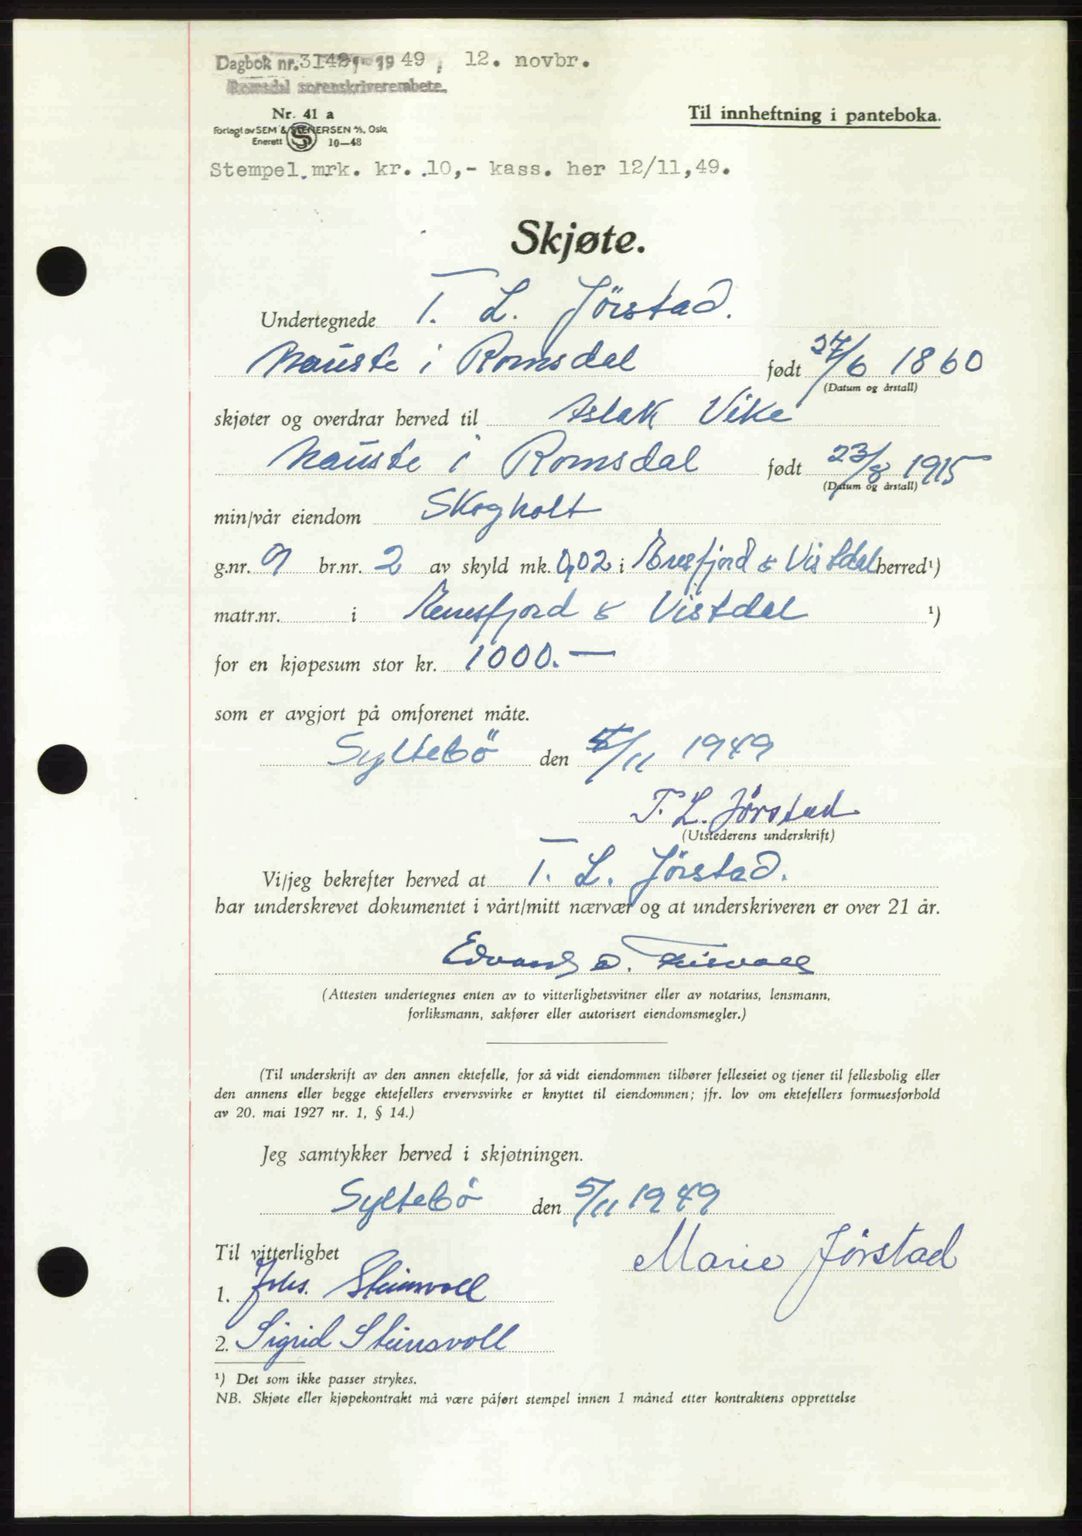 Dagbok nr. 3142 - 1949, 12. novbr.
Romsdal sorenskriverembete.
Nr. 41 a
Til innheftning i panteboka.
Forlagt av SEM & STENERSEN A/S, Oslo
Enerett 10—48
Stempel mrk. kr. 10,- kass. her 12/11,49.
Skjøte.
Undertegnede T. L. Jörstad.
Nauste i Romsdal født 27/6 1860
(Datum og årstall)
skjøter og overdrar herved til Aslak Vike
Nauste i Romsdal født 23/8 1915
(Datum og årstall)
min/vår eiendom Skogholt
g.nr. 9 br.nr. 2 av skyld mk. 0,02 i Eresfjord & Vistdal herred¹)
matr.nr. i Eresfjord & Vistdal ¹)
for en kjøpesum stor kr. 1000.—
som er avgjort på omforenet måte.
Syltebö den 5/11 1949
T. L. Jörstad
(Utstederens underskrift)
Vi/jeg bekrefter herved at T. L. Jörstad.
har underskrevet dokumentet i vårt/mitt nærvær og at underskriveren er over 21 år.
Edvard
(Attesten undertegnes enten av to vitterlighetsvitner eller av notarius, lensmann,
forliksmann, sakfører eller autorisert eiendomsmegler.)
(Til underskrift av den annen ektefelle, for så vidt eiendommen tilhører felleseiet og tjener til fellesbolig eller
den annens eller begge ektefellers ervervsvirke er knyttet til eiendommen; jfr. lov om ektefellers formuesforhold
av 20. mai 1927 nr. 1, § 14.)
Jeg samtykker herved i skjøtningen.
Syltebö den 5/11 1949
Til vitterlighet
Marie Jørstad
1. Johs. Steinsvoll
2. Sigrid Steinsvoll
¹) Det som ikke passer strykes.
NB. Skjøte eller kjøpekontrakt må være påført stempel innen 1 måned etter kontraktens opprettelse